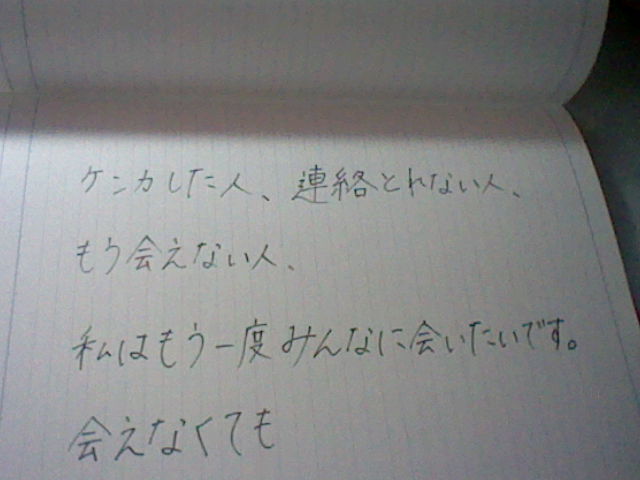 ケンカした人、連絡とれない人、
もう会えない人、
私はもう一度みんなに会いたいです。
会えなくても